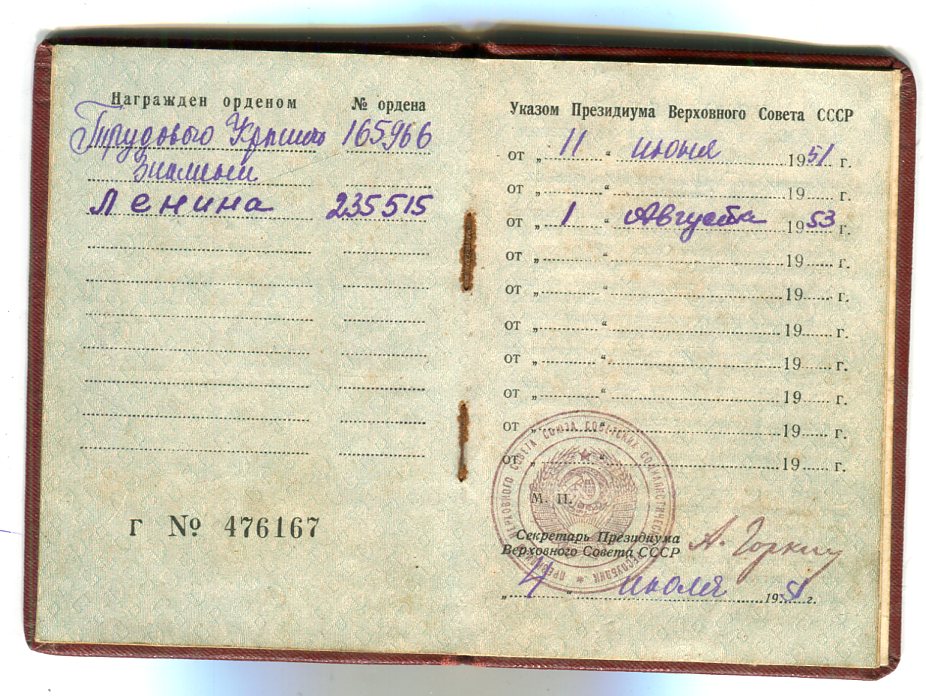 Награжден орденом
№ ордена
Трудового Красного
165966
Знамени
Ленина
235515
Г № 476167
Указом Президиума Верховного Совета СССР
от „ 11 “ июня 1951 г.
от „ “ 19 г.
от „ 1 “ Августа 1953 г.
от „ “ 19 г.
от „ “ 19 г.
от „ “ 19 г.
от „ “ 19 г.
от „ “ 19 г.
от „ “ 19 г.
от „ “ 19 г.
М. П.
Секретарь Президиума
Верховного Совета СССР
А. Горкин
„ 4 “ июля 1951 г.